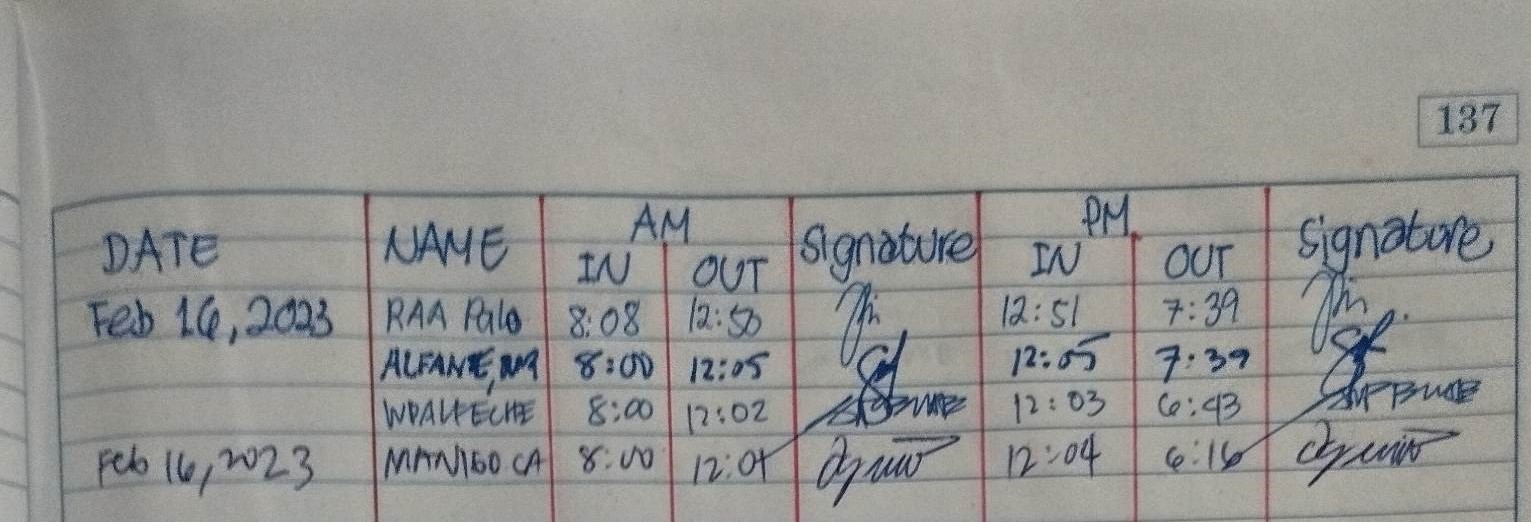 137
DATE NAME AM Signature PM. Signature
IN OUT IN OUT
Feb 16, 2023 RAA Palo 8:08 12:50 12:51 7:39
ALFANTE, 8:00 12:05 12:05 7:39
WPALPECHE 8:00 12:02 12:03 6:43
Feb 16, 2023 MANIGO CA 8:00 12:04 6:16